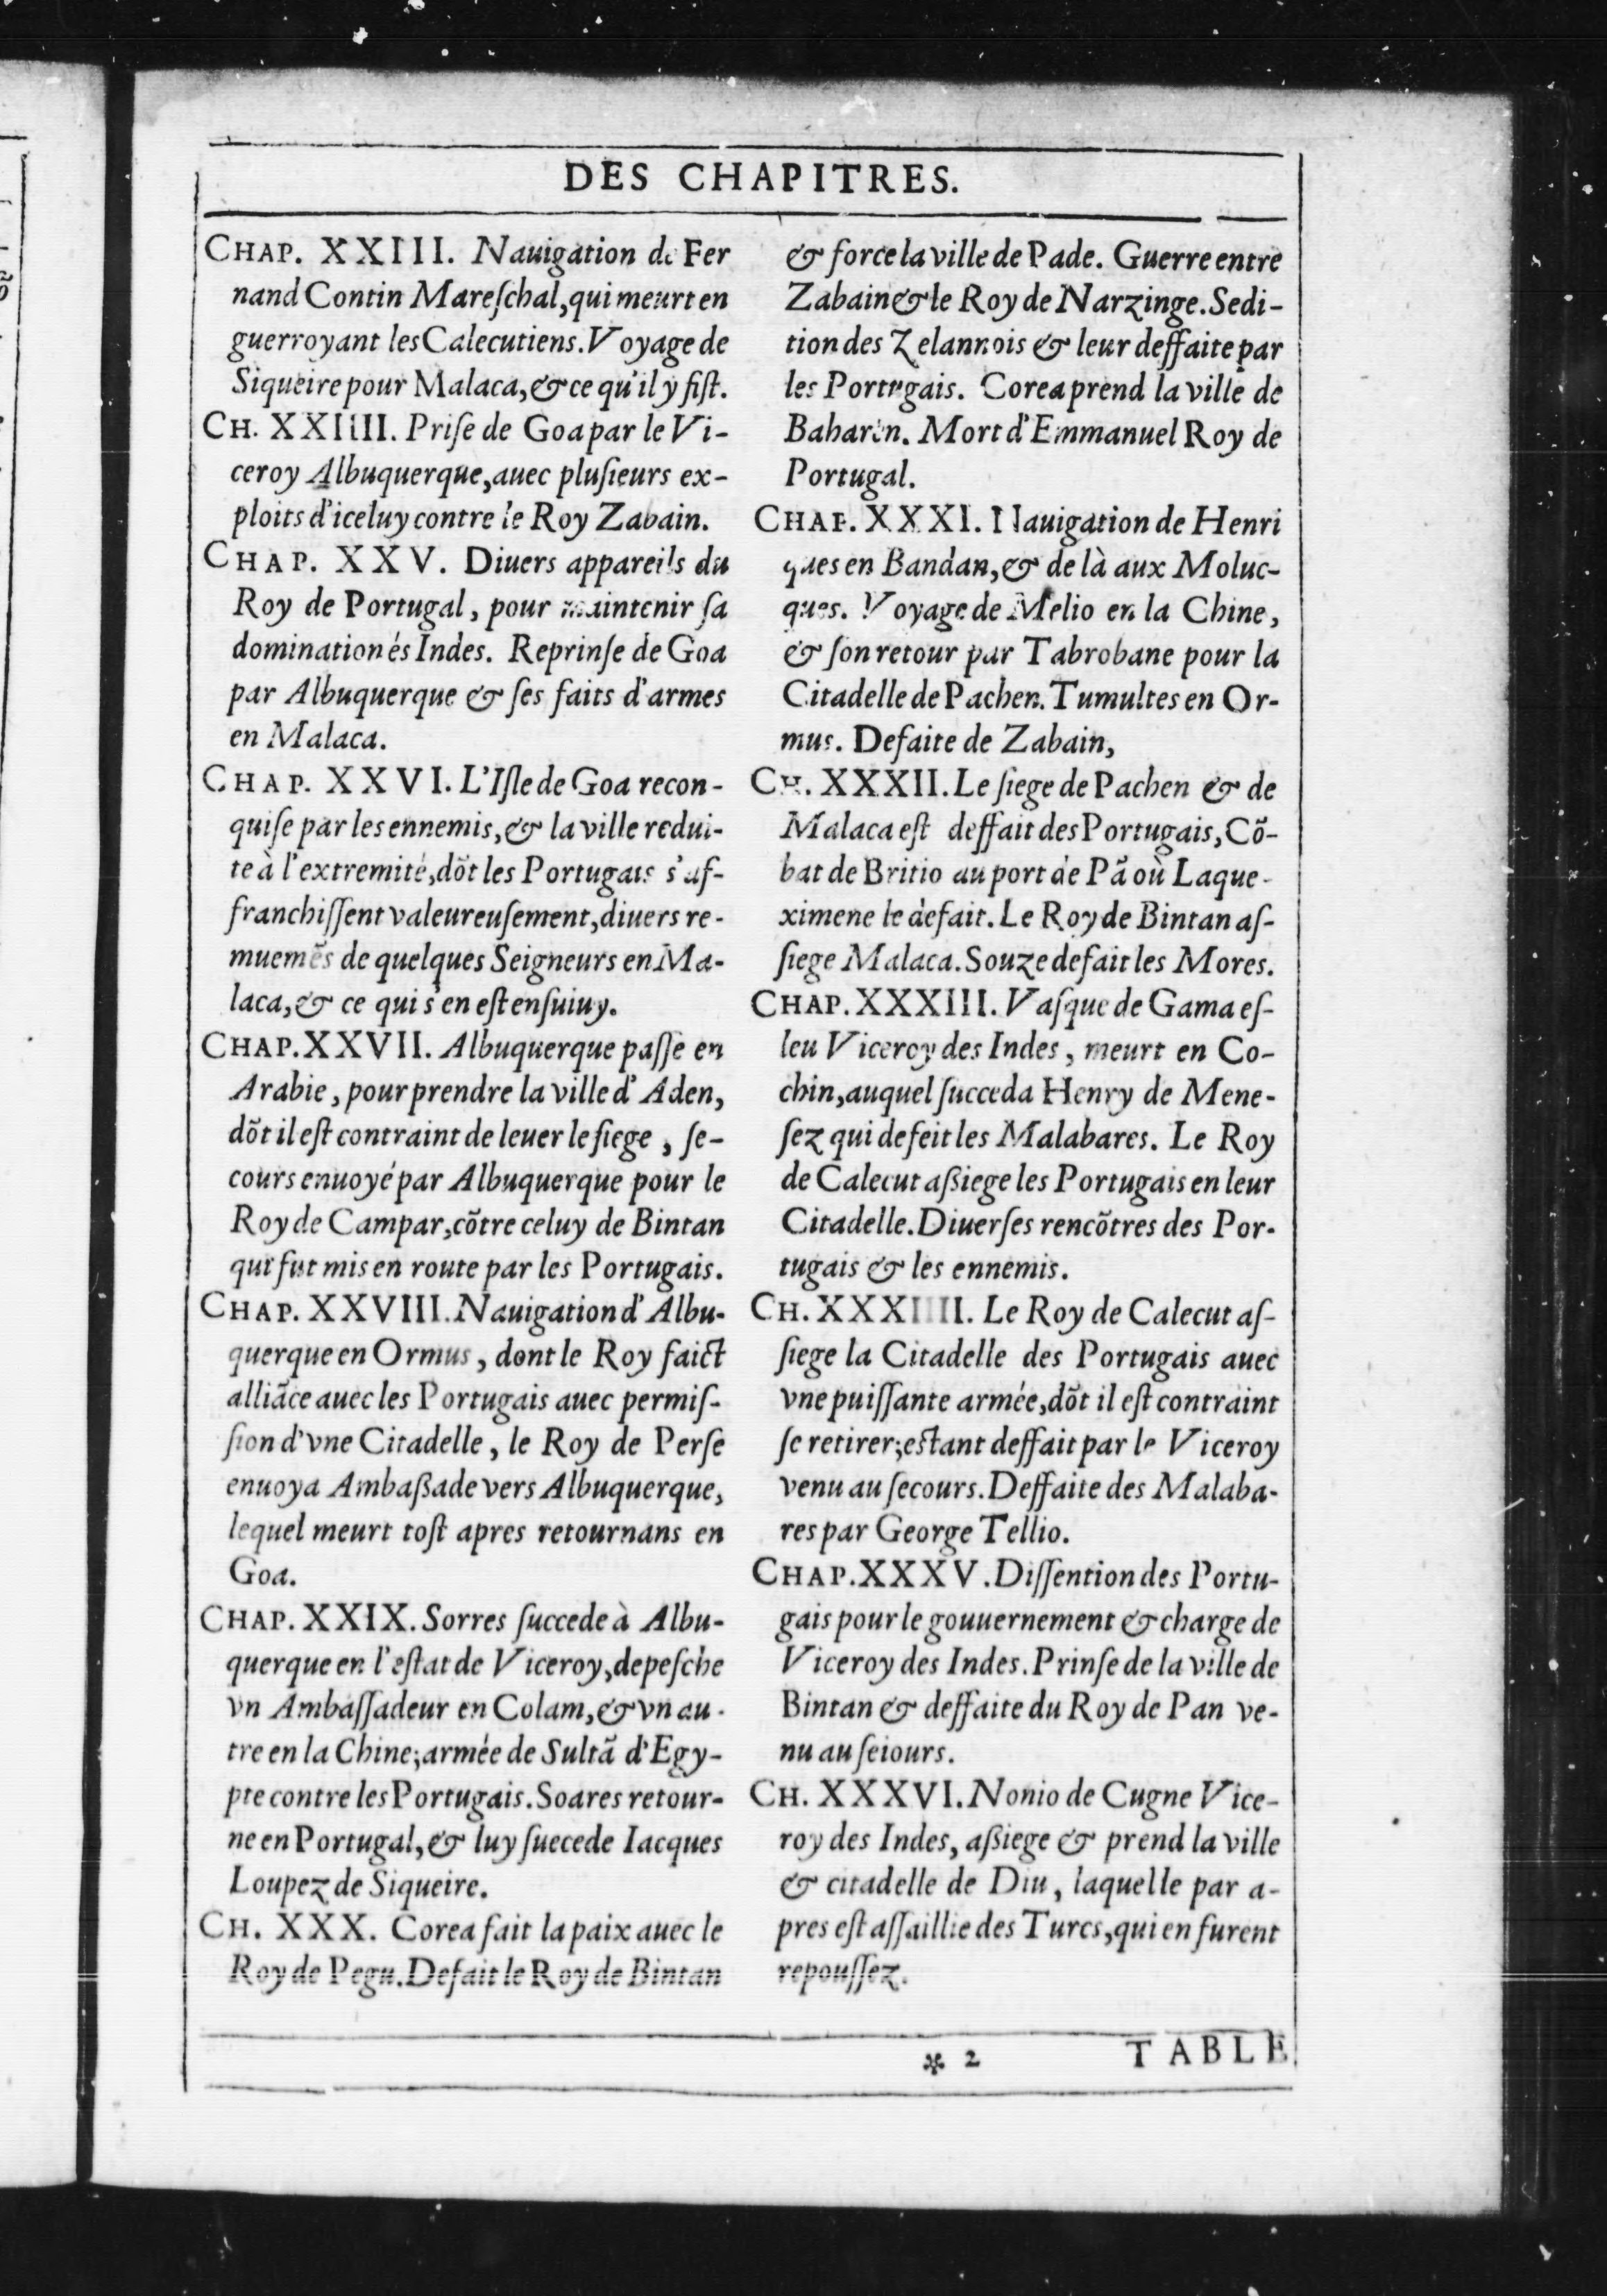 DES CHAPITRES.
CHAP. XXIII. Nauigation de Fer
nand Contin Mareſchal, qui meurt en
guerroyant les Calecutiens. Voyage de
Siqueire pour Malaca, & ce qu'il y fiſt.
CH. XXIIII. Priſe de Goa par le Vi-
ceroy Albuquerque, auec pluſieurs ex-
ploits d'iceluy contre le Roy Zabain.
CHAP. XXV. Diuers appareils du
Roy de Portugal, pour maintenir ſa
domination és Indes. Reprinſe de Goa
par Albuquerque & ſes faits d'armes
en Malaca.
CHAP. XXVI. L'Iſle de Goa recon-
quiſe par les ennemis, & la ville redui-
te à l'extremité, dõt les Portugais s'af-
franchiſſent valeureuſement, diuers re-
muemẽs de quelques Seigneurs en Ma-
laca, & ce qui s'en eſt enſuiuy.
CHAP. XXVII. Albuquerque paſſe en
Arabie, pour prendre la ville d'Aden,
dõt il eſt contraint de leuer le ſiege, ſe-
cours enuoyé par Albuquerque pour le
Roy de Campar, cõtre celuy de Bintan
qui fut mis en route par les Portugais.
CHAP. XXVIII. Nauigation d'Albu-
querque en Ormus, dont le Roy faict
alliãce auec les Portugais auec permiſ-
ſion d'vne Citadelle, le Roy de Perſe
enuoya Ambaßade vers Albuquerque,
lequel meurt toſt apres retournans en
Goa.
CHAP. XXIX. Sorres ſuccede à Albu-
querque en l'eſtat de Viceroy, depeſche
vn Ambaſſadeur en Colam, & vn au-
tre en la Chine; armée de Sultã d'Egy-
pte contre les Portugais. Soares retour-
ne en Portugal, & luy ſuecede Iacques
Loupez de Siqueire.
CH. XXX. Corea fait la paix auec le
Roy de Pegu. Defait le Roy de Bintan
& force la ville de Pade. Guerre entre
Zabain & le Roy de Narzinge. Sedi-
tion des Zelannois & leur deffaite par
les Portugais. Corea prend la ville de
Baharen. Mort d'Emmanuel Roy de
Portugal.
CHAP. XXXI. Nauigation de Henri
ques en Bandan, & de là aux Moluc-
ques. Voyage de Melio en la Chine,
& ſon retour par Tabrobane pour la
Citadelle de Pachen. Tumultes en Or-
mus. Defaite de Zabain,
CH. XXXII. Le ſiege de Pachen & de
Malaca eſt deffait des Portugais, Cõ-
bat de Britio au port de Pã où Laque-
ximene le defait. Le Roy de Bintan aſ-
ſiege Malaca. Souze defait les Mores.
CHAP. XXXIII. Vaſque de Gama eſ-
leu Viceroy des Indes, meurt en Co-
chin, auquel ſucceda Henry de Mene-
ſez qui defeit les Malabares. Le Roy
de Calecut aßiege les Portugais en leur
Citadelle. Diuerſes rencõtres des Por-
tugais & les ennemis.
CH. XXXIIII. Le Roy de Calecut aſ-
ſiege la Citadelle des Portugais auec
vne puiſſante armée, dõt il eſt contraint
ſe retirer; eſtant deffait par le Viceroy
venu au ſecours. Deffaite des Malaba-
res par George Tellio.
CHAP. XXXV. Diſſention des Portu-
gais pour le gouuernement & charge de
Viceroy des Indes. Prinſe de la ville de
Bintan & deffaite du Roy de Pan ve-
nu au ſeiours.
CH. XXXVI. Nonio de Cugne Vice-
roy des Indes, aßiege & prend la ville
& citadelle de Diu, laquelle par a-
pres eſt aſſaillie des Turcs, qui en furent
repouſſez.
* 2 TABLE